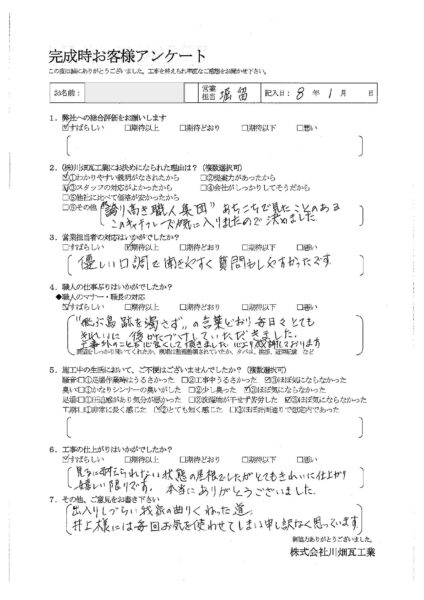 完成時お客様アンケート
この度は誠にありがとうございました。工事を終えられ率直なご感想をお聞かせ下さい。
お名前: 営業担当 堀留 記入日: 8年 1月 日
1. 弊社への総合評価をお願いします
☑すばらしい □期待以上 □期待どおり □期待以下 □悪い
2. (株)川畑瓦工業にお決めになられた理由は?(複数選択可)
☑①わかりやすい説明がなされたから □②提案力があったから
☑③スタッフの対応がよかったから □④会社がしっかりしてそうだから
□⑤他社に比べて価格が安かったから
□⑥その他 "誇り高き職人集団" あちこちで見たことのある
このキャチフレーズが気に入りましたので決めました。
3. 営業担当者の対応はいかがでしたか?
□すばらしい ☑期待以上 □期待どおり □期待以下 □悪い
優しい口調で聞きやすく質問もしやすかったです
4. 職人の仕事ぶりはいかがでしたか?
◆職人のマナー・職長の対応
☑すばらしい □期待以上 □期待どおり □期待以下 □悪い
"飛ぶ鳥跡を濁さず"の言葉どおり毎日々とても
きれいに後かたづけしていただきました。
工事外のことも心良くして頂きました 心より感謝しております
5. 施工中の生活において、ご不便はございませんでしたか?(複数選択可)
騒音□①足場作業時はうるさかった □②工事中うるさかった ☑③ほぼ気にならなかった
臭い□①かなりシンナーの臭いがした □②少し臭った ☑③ほぼ気にならなかった
足場□①圧迫感があり気分が悪かった □②洗濯物が干せず苦労した ☑③ほぼ気にならなかった
工期□①非常に長く感じた ☑②とても短く感じた □③ほぼ計画通りで想定内であった
6. 工事の仕上がりはいかがでしたか?
☑すばらしい □期待以上 □期待どおり □期待以下 □悪い
見るに耐えられない状態の屋根でしたがとてもきれいに仕上がり
嬉しい限りです。本当にありがとうございました。
7. その他、ご意見をお書き下さい
出入りしづらい我家の曲りくねった道、
井上様には毎回お気を使わせてしまい申し訳なく思っています
御協力ありがとうございました。
株式会社川畑瓦工業